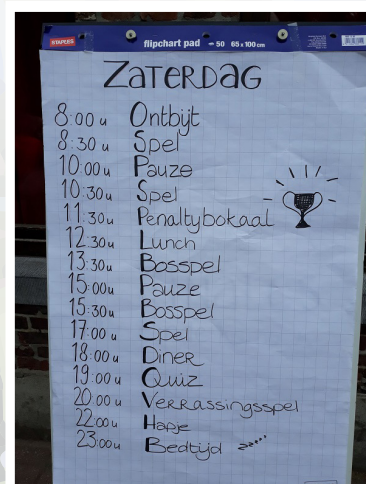 STAPLES flipchart pad 50 65 x 100 cm
ZATERDAG
8:00 u Ontbijt
8:30 u Spel
10:00 u Pauze
10:30 u Spel
11:30 u Penaltybokaal
12:30 u Lunch
13:30 u Bosspel
15:00 u Pauze
15:30 u Bosspel
17:00 u Spel
18:00 u Diner
19:00 u Quiz
20:00 u Verrassingsspel
22:00 u Hapje
23:00 u Bedtijd